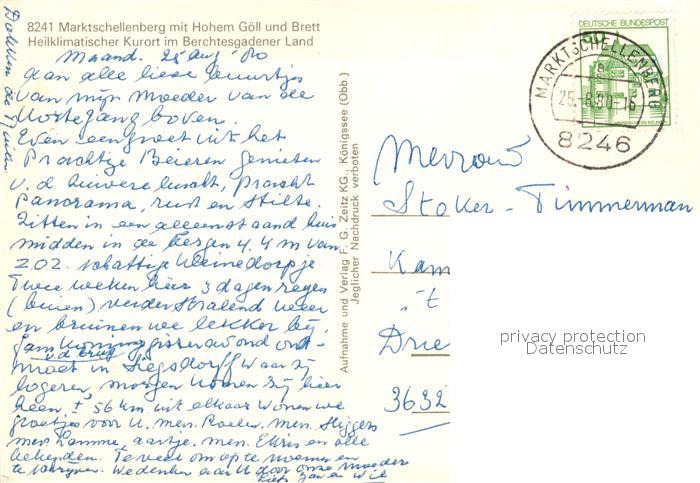 8241 Marktschellenberg mit Hohem Göll und Brett
Heilklimatischer Kurort im Berchtesgadener Land
Maand. 25 Aug '80
Aan alle lieve buurtjes
van mijn Moeder van de
gang boven.
Even een groet uit het
Prachtige Beieren genieten
v. d zuivere lucht, pracht
Panorama, rust en stilte.
Zitten in een alleenstaand huis
midden in de bergen 4. 4 m van
z.o.z. schattige kleine dorpje
Twee weken hier 3 dagen regen
(binnen) verder stralend weer
en bruinen we lekker bij.
gisteravond ont-
moet in Siegsdorff waar zij
logeren, morgen komen zij hier
heen. ± 56 km uit elkaar wonen we
groetjes voor U. mevr. mevr.
mevr Lamme, aartje, mevr. en alle
bekenden. Teveel om op te noemen en
te schrijven. We denken aan U door onze Moeder
Jan en Wil
Aufnahme und Verlag F. G. Zeitz KG., Königssee (Obb.)
Jeglicher Nachdruck verboten
DEUTSCHE BUNDESPOST
MARKTSCHELLENBERG
a
25.-8.80-16
8246
Mevrouw
Stoker - Timmerman
Kam
't
Drie
3632
privacy protection
Datenschutz